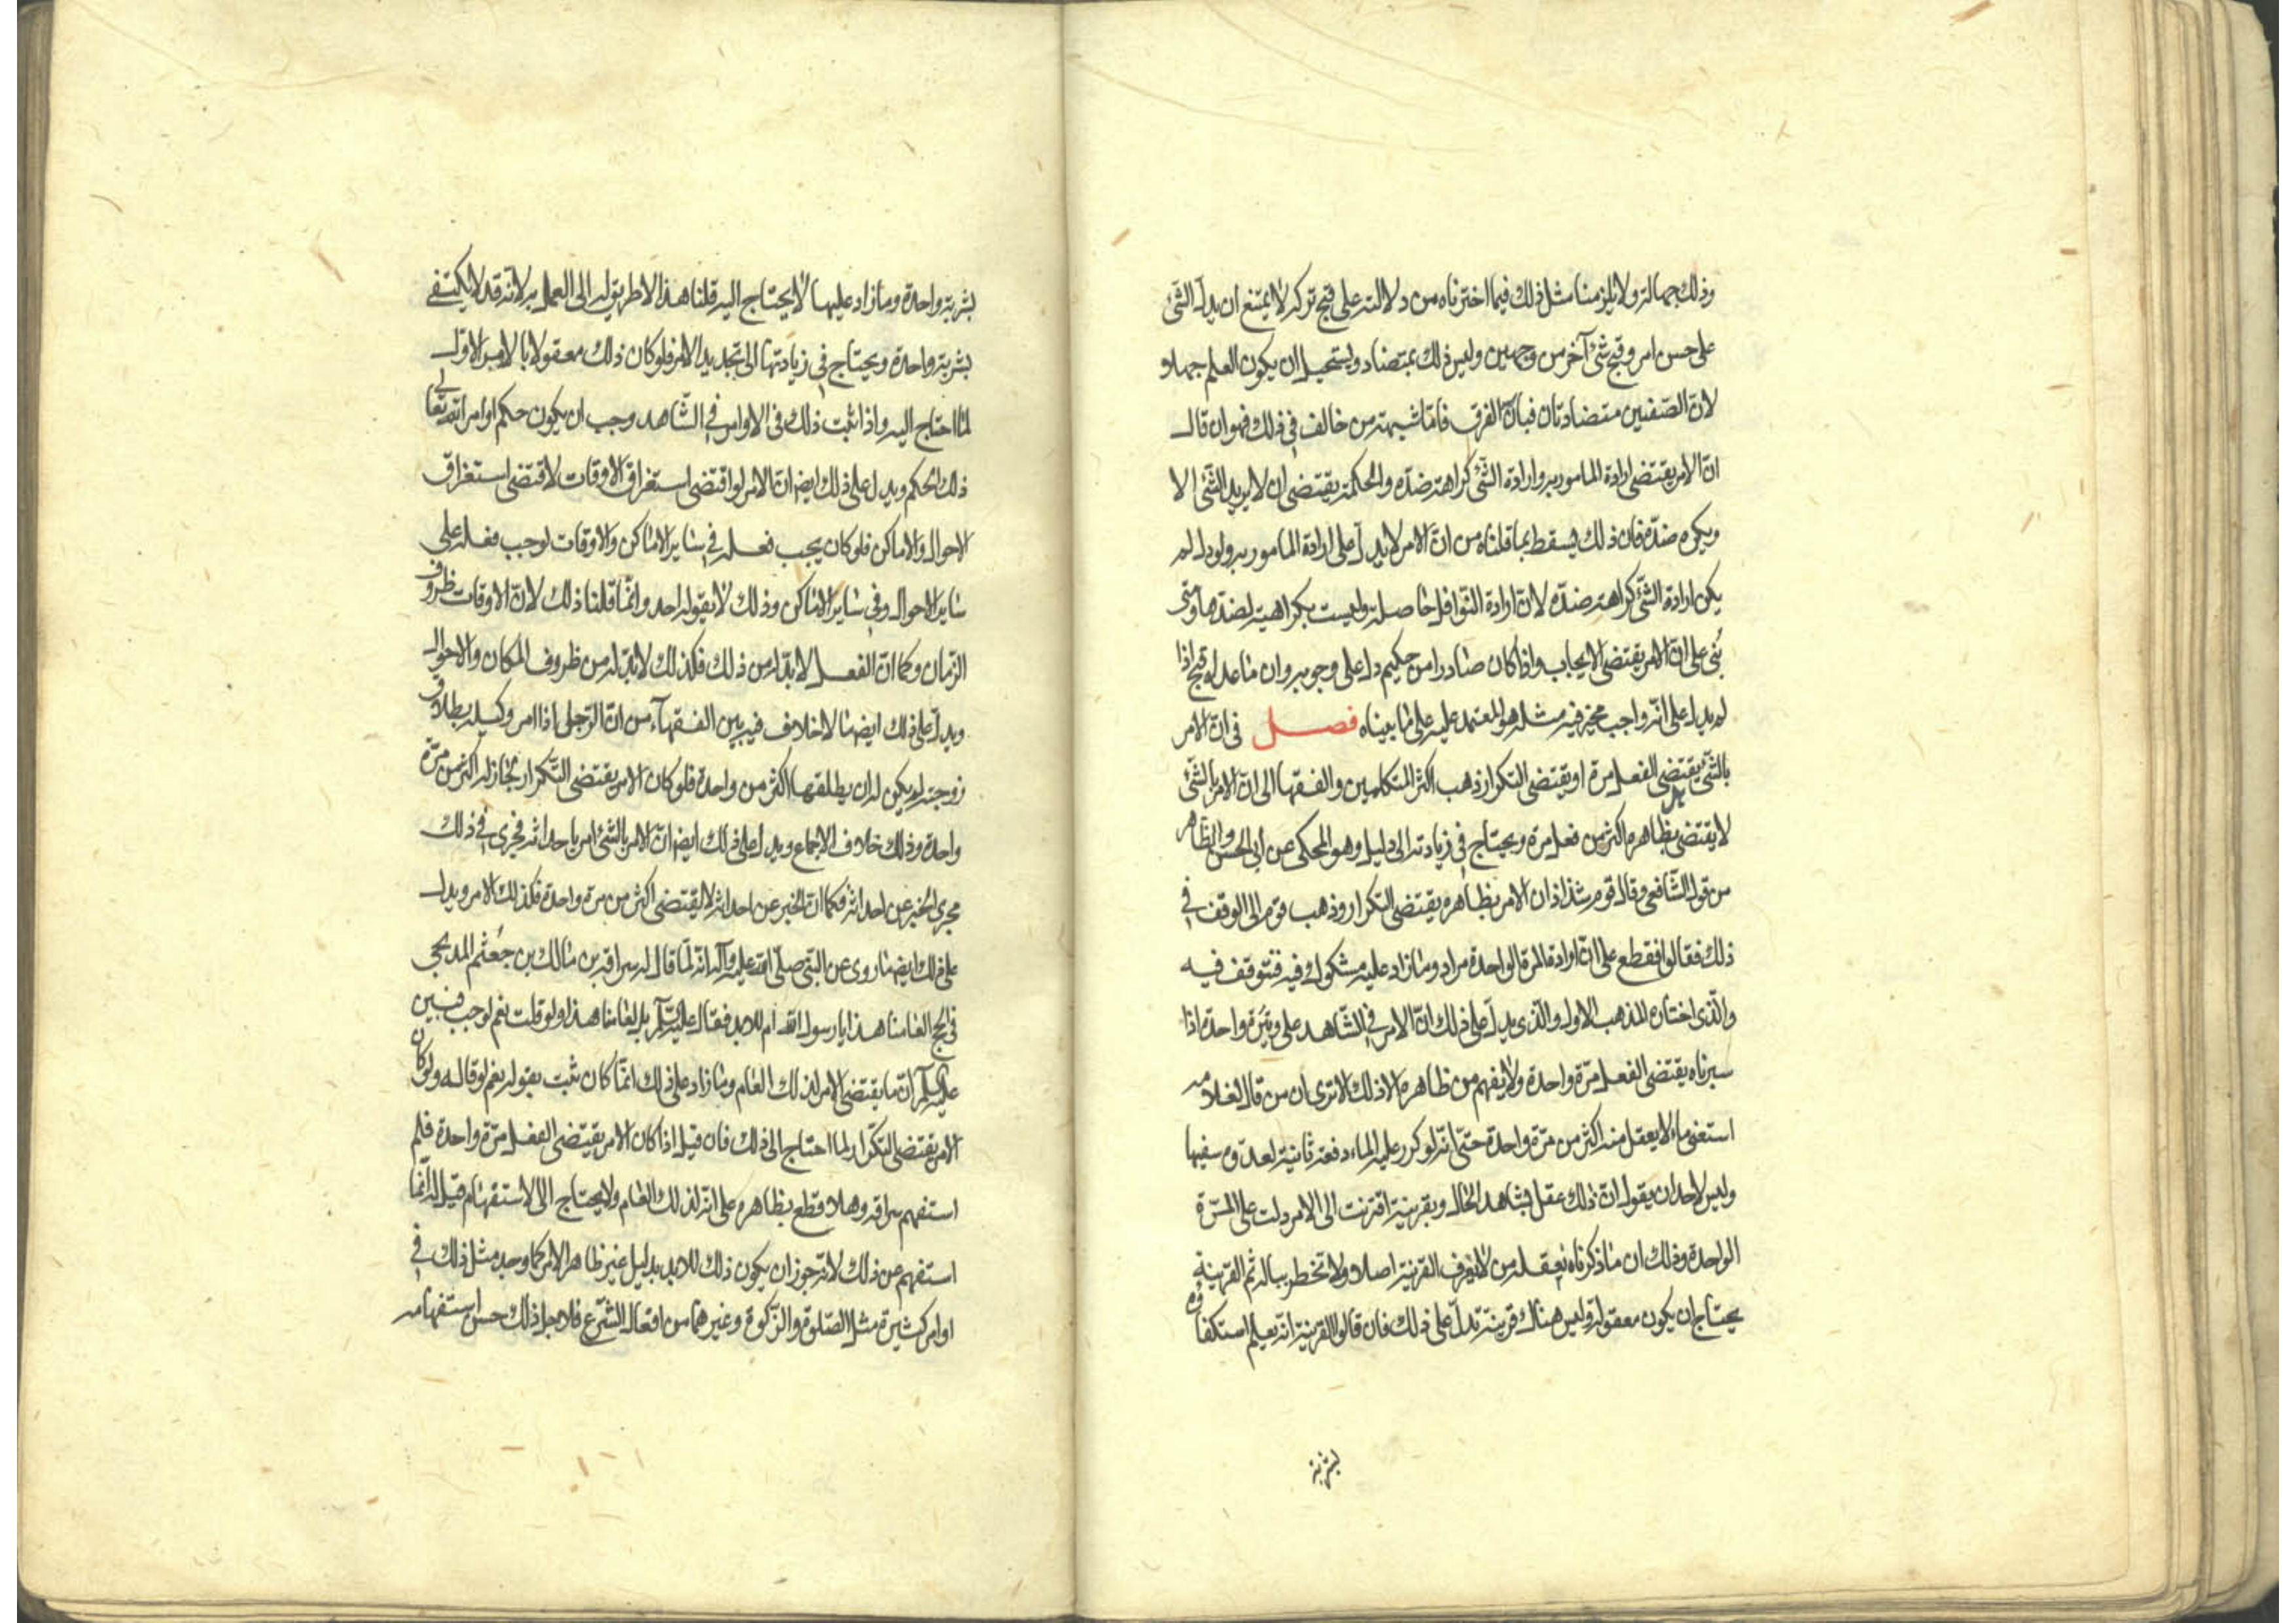 وذلك جهالة ولا يلزمنا مثل ذلك فيما اخترناه من دلالته على قبح تركه لا يمتنع ان يدل الشئ
على حسن امر وقبح شئ آخر من وجهين وليس ذلك بمتضاد ويستحيل ان يكون العلم جهلا و
لانّ الصّفتين متضادتان فبان الفرق فامّا شبهة من خالف في ذلك فهو ان قال
انّ الامر يقتضى ارادة المامور به وارادة الشّئ كراهة ضدّه والحكمة يقتضى ان لا يريد الشّئ الا
ويكره ضدّه فان ذلك يسقط بما قلناه من انّ الامر لا يدلّ على ارادة المامور به ولو دل لم
يكن ارادة الشّئ كراهة ضدّه لانّ ارادة النّوافل حاصلة وليست بكراهية لضدها ومتى
بُنى على انّ الامر يقتضى الايجاب واذا كان صادرا من حكيم دلّ على وجوبه وان ما عداه قبيح اذا
لم يدل على انّه واجب مخير فيه مثله هو المعتمد عليه على ما بيناه فصـــل فى انّ الامر
بالشّئ يقتضى الفعل مرة او يقتضى التكرار ذهب اكثر المتكلمين والفقها الى انّ الامر بالشّئ
لا يقتضى بظاهره اكثر من فعل مرة ويحتاج في زيادته الى دليل وهو المحكى عن أبى الحسن والظاهر
من قول الشّافعى وقال قوم شذاذ ان الامر بظاهره يقتضى التكرار وذهب قوم الى الوقف في
ذلك فقالوا نقطع على انّ ارادة المرة الواحدة مراد وما زاد عليه مشكوك فيه فنتوقف فيه
والّذى اختاره المذهب الاول والّذى يدلّ على ذلك انّ الامر في الشّاهد على وتيرة واحدة اذا
سبرناه يقتضى الفعل مرّة واحدة ولا يفهم من ظاهره الا ذلك الا ترى ان من قال لغلامه
اسقنى ماء لا يعقل منه اكثر من مرّة واحدة حتّى انّه لو كرر عليه الماء دفعة ثانية لعدّوه سفيها
وليس لاحد ان يقول انّ ذلك عقل بشاهد الحال وبقرينة اقترنت الى الامر دلت على المرّة
الواحدة وذلك ان ما ذكرناه يعقله من لا يعرف القرينة اصلا ولا تخطر بباله ثم القرينة
يحتاج ان يكون معقولة وليس هناك قرينة تدلّ على ذلك فان قالوا القرينة انّه يعلم استكفاؤه
بشربة
بشربة واحدة وما زاد عليها لا يحتاج اليه قلنا هذا لا طريق له الى العلم به لانّه قد لا يكتفى
بشربة واحدة ويحتاج في زيادتها الى تجديد الامر فلو كان ذلك معقولا بالامر الاوّل
لما احتاج اليه واذا ثبت ذلك فى الاوامر في الشّاهد وجب ان يكون حكم اوامر الله تعالى
ذلك الحكم ويدل على ذلك ايضا انّ الامر لو اقتضى استغراق الاوقات لاقتضى استغراق
الاحوال والاماكن فلو كان يجب فعله في سائر الاماكن والاوقات لوجب فعله على
سائر الاحوال وفي سائر الاماكن وذلك لا يقوله احد وانّما قلنا ذلك لانّ الاوقات ظروف
الزمان وكما انّ الفعل لا بدّ له من ذلك فكذلك لا بدّ له من ظروف المكان والاحوال
ويدلّ على ذلك ايضا ما لا خلاف فيه بين الفقهآء من انّ الرّجل اذا امر وكيله بطلاق
زوجته لم يكن له ان يطلقها اكثر من واحدة فلو كان الامر يقتضى التّكرار لجاز له اكثر من مرّة
واحدة وذلك خلاف الاجماع ويدل على ذلك ايضا انّ الامر بالشئ امر باحداثه فجرى في ذلك
مجرى الخبر عن احداثه فكما انّ الخبر عن احداثه لا يقتضى اكثر من مرة واحدة فكذلك الامر ويدل
على ذلك ايضا ما روى عن النّبي صلّى الله عليه وآله انّه لمّا قال له سراقة بن مالك بن جُعْثم المدلجى
فى الحج العامنا هذا يا رسول الله ام للابد فقال عليه السّلم بل لعامنا هذا ولو قلت نعم لوجب فبين
عليه السلم انّ ما يقتضى الامر لذلك العام وما زاد على ذلك انّما كان ثبت بقوله نعم لو قاله ولو كان
الامر يقتضى التّكرار لما احتاج الى ذلك فان قيل اذا كان الامر يقتضى الفعل مرّة واحدة فلم
استفهم سراقة وهلا قطع بظاهره على انّه لذلك العام ولا يحتاج الى الاستفهام قيل له انّما
استفهم عن ذلك لانّه جوز ان يكون ذلك للابد بدليل غير ظاهر الامر كما وجد مثل ذلك في
اوامر كثيرة مثل الصّلوة والزّكوة وغيرهما من افعال الشّرع فلاجل ذلك حسن استفهامه